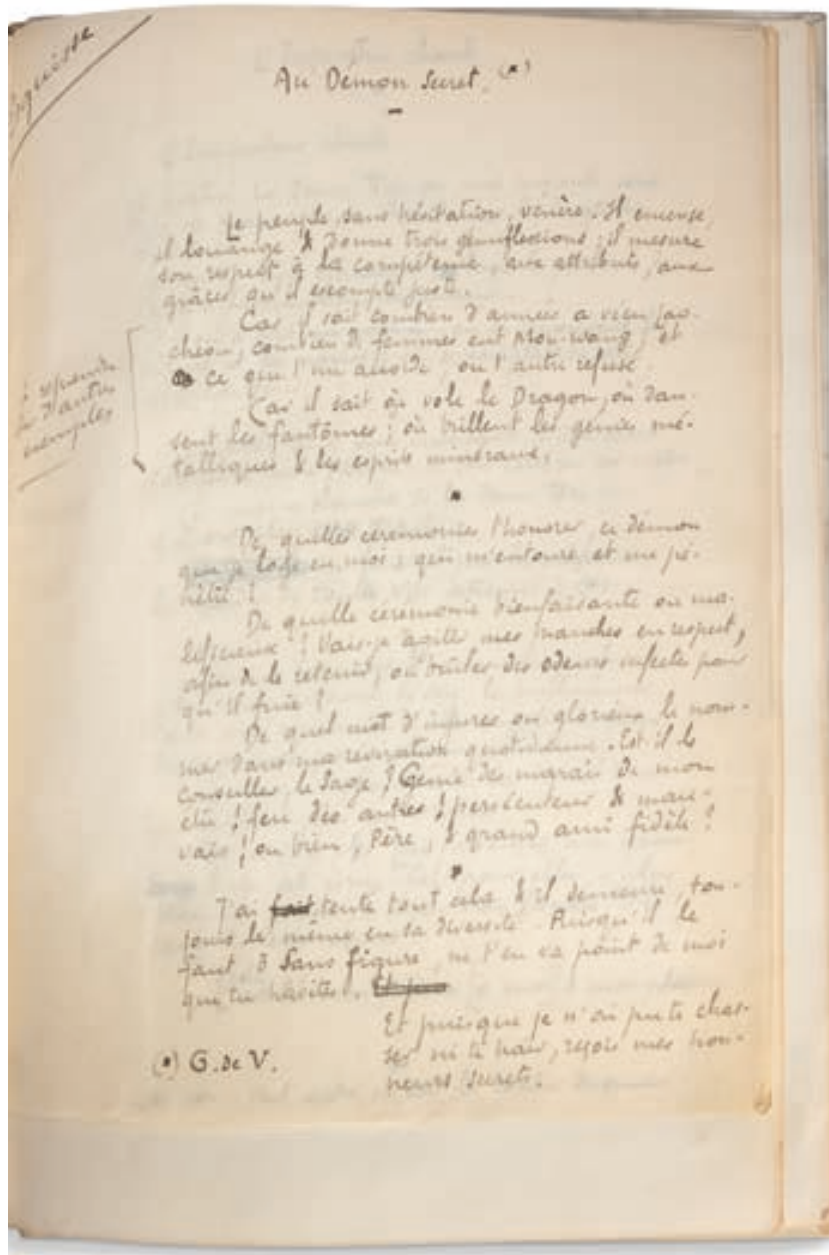 Esquisse
Au Démon secret. (*)
Le peuple, sans hésitation, vénère. Il encense,
il louange & donne trois génuflexions ; il mesure
son respect à la compétence, aux attributs, aux
grâces qu'il escompte juste.
Car il sait combien d'années a vécu
combien de femmes eut Mou-wang, et
ce que l'un accorde ou l'autre refuse.
à reprendre
d'autres
exemples
Car il sait où vole le Dragon, où dan-
sent les fantômes ; où brillent les génies mé-
talliques & les esprits minéraux.
*
De quelles cérémonies l'honorer, ce démon
que je loge en moi, qui m'entoure et me pé-
nètre ?
De quelle cérémonie bienfaisante ou ma-
léficieuse ? Vais-je agiter mes manches en respect,
afin de le retenir, ou brûler des odeurs infectes pour
qu'il fuie ?
De quel mot d'injures ou glorieux le nom-
mer dans ma vénération quotidienne. Est-il le
Conseiller, le Sage ? Génie des marais de mon
feu des autres ! persécuteur & mau-
vais ! ou bien, Père, & grand ami fidèle ?
*
J'ai fait tenté tout cela & il demeure, tou-
jours le même en sa diversité. Puisqu'il le
faut, ô Sans figure, ne t'en va point de moi
que tu habites.
Et puisque je n'ai pu te chas-
ser ni te haïr, reçois mes hon-
neurs secrets.
(*) G. de V.